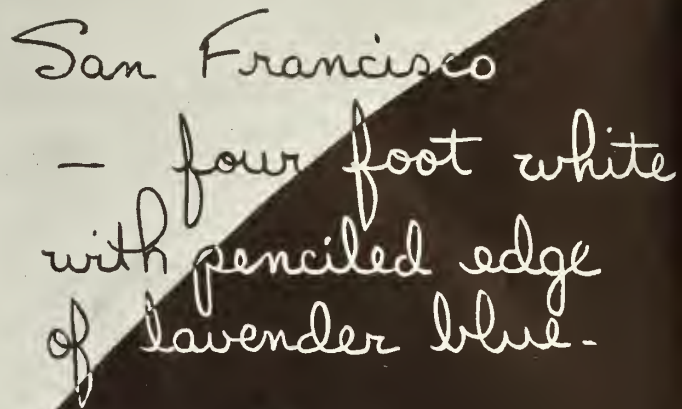 San Francisco
— four foot white
with penciled edge
of lavender blue.